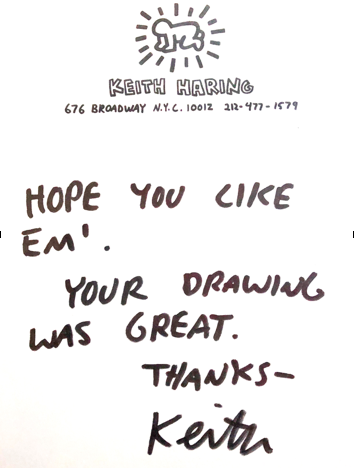 KEITH HARING
676 BROADWAY N.Y.C. 10012 212-477-1579
HOPE YOU LIKE
EM'.
YOUR DRAWING
WAS GREAT.
THANKS-
Keith